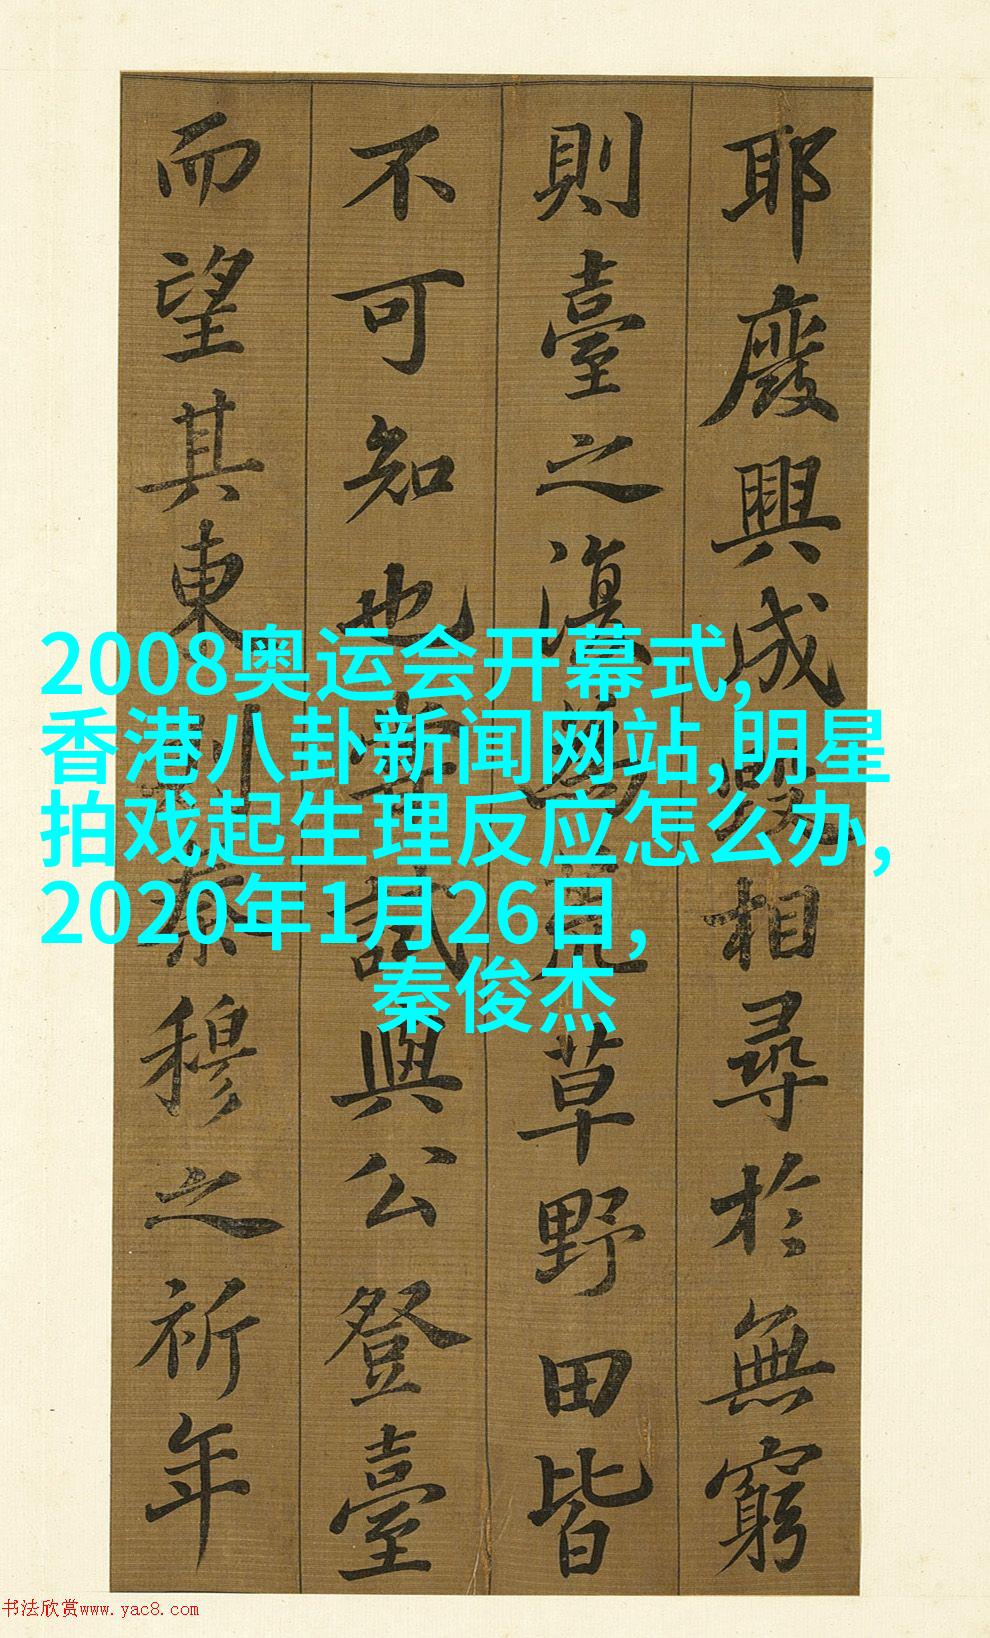 耶廢興成毀相尋於無窮
則臺之復為荒草野田皆
不可知也嘗試與公登臺
而望其東則秦穆之祈年
2008奥运会开幕式,
香港八卦新闻网站,明星
拍戏起生理反应怎么办,
2020年1月26日,
秦俊杰
书法欣赏www.yac8.com